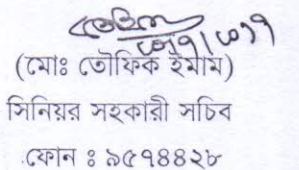 (মোঃ তৌফিক ইমাম)
সিনিয়র সহকারী সচিব
ফোন ঃ ৯৫৭৪৪২৮